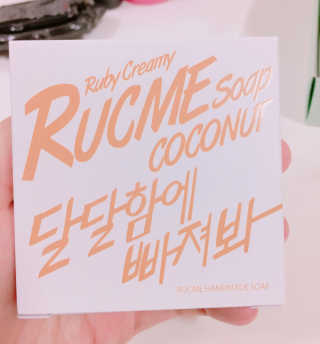 Ruby Creamy
RUCME soap
COCONUT
달달함에
빠져봐
RUCME HANDMADE SOAP